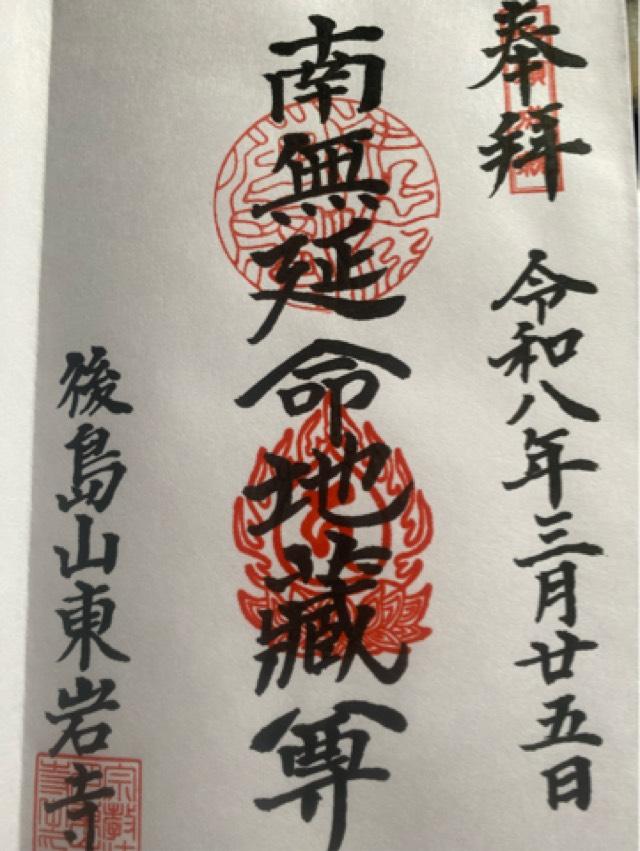 奉拜
令和八年三月廿五日
南無延命地藏尊
後島山東岩寺